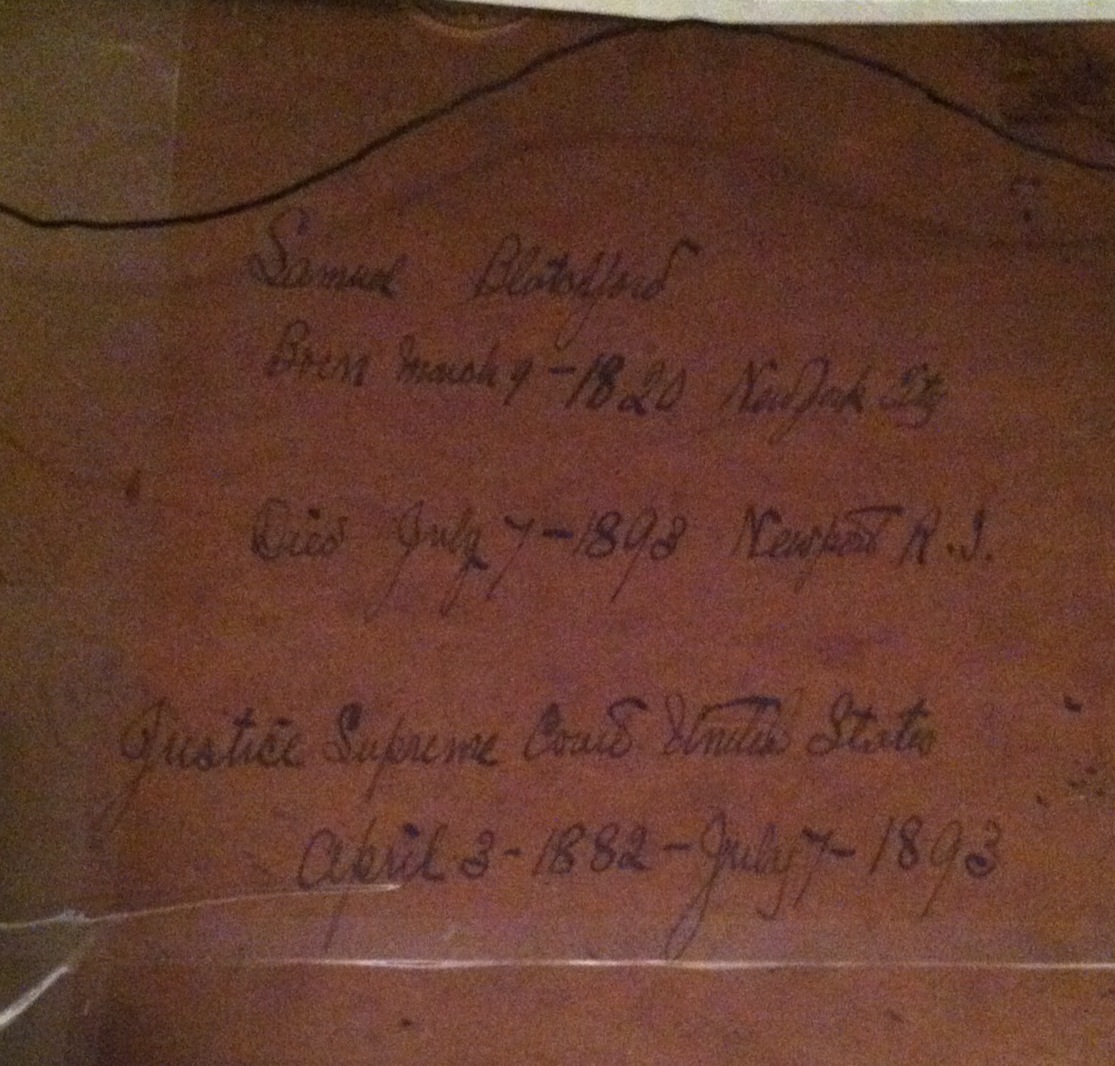 Samuel Blatchford
Born March 9 - 1820 New York City
Died July 7 - 1893 Newport R.I.
Justice Supreme Court United States
April 3 - 1882 - July 7 - 1893